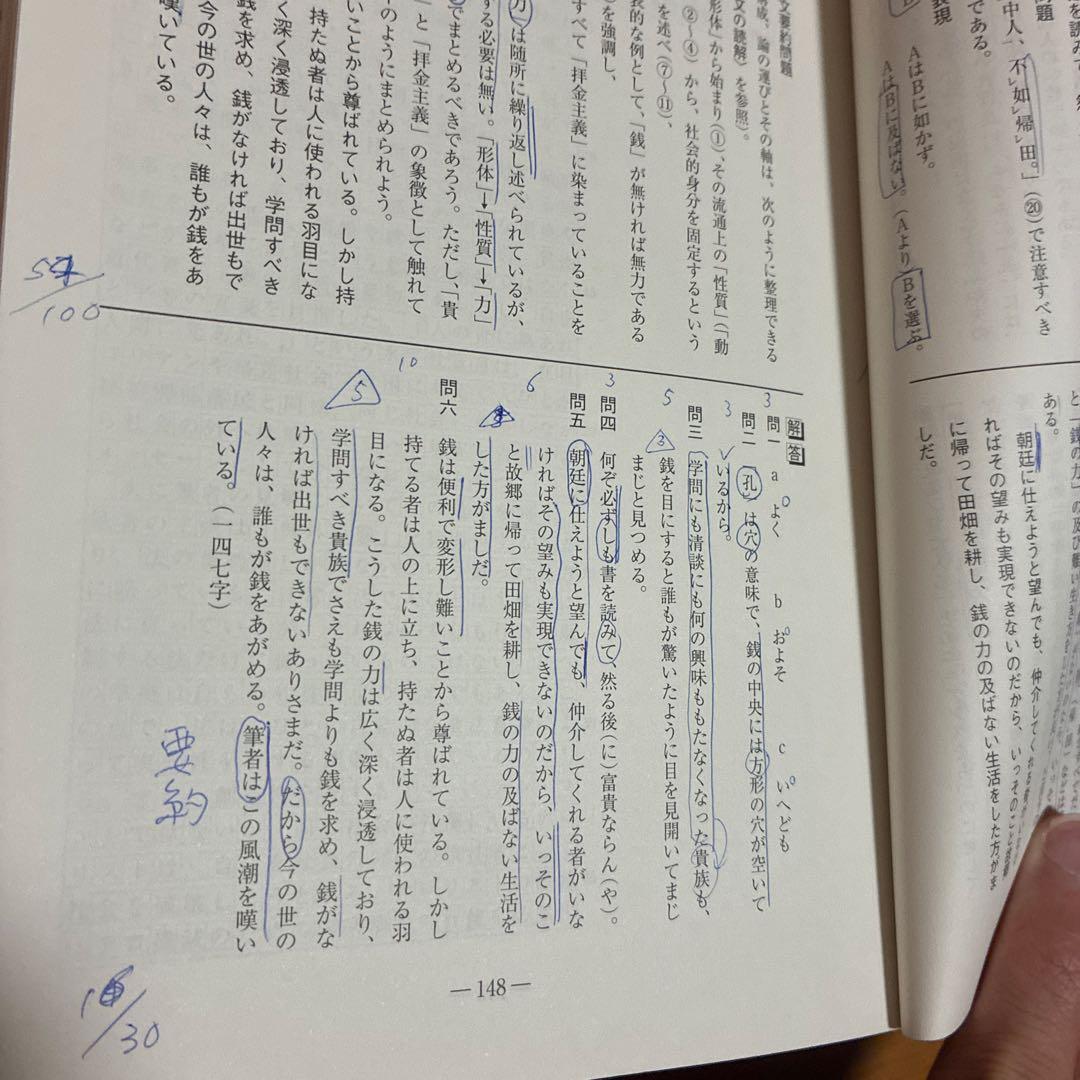 文要約問題
構成、論の運びとその軸は、次のように整理できる
文の読解）を参照）。
形体」から始まり（①）、その流通上の「性質」（「動
②～④）から、社会的身分を固定するという
を述べ（⑦～⑪）、
的な例として、「銭」が無ければ無力である
を強調し、
すべて「拝金主義」に染まっていることを
力」は随所に繰り返し述べられているが、
する必要は無い。「形体」→「性質」→「力」
でまとめるべきであろう。ただし、「貴
」と「拝金主義」の象徴として触れて
のようにまとめられよう。
いことから尊ばれている。しかし持
持たぬ者は人に使われる羽目にな
く深く浸透しており、学問すべき
銭を求め、銭がなければ出世もで
今の世の人々は、誰もが銭をあ
嘆いている。
解答
問一 a よく b およそ c いへども
問二 「孔」は穴の意味で、銭の中央には方形の穴が空いて
いるから。
問三 学問にも清談にも何の興味ももたなくなった貴族も、
銭を目にすると誰もが驚いたように目を見開いてまじ
まじと見つめる。
問四 何ぞ必ずしも書を読みて、然る後（に）富貴ならん（や）。
問五 朝廷に仕えようと望んでも、仲介してくれる者がいな
ければその望みも実現できないのだから、いっそのこ
と故郷に帰って田畑を耕し、銭の力の及ばない生活を
した方がましだ。
問六 銭は便利で変形し難いことから尊ばれている。しかし
持てる者は人の上に立ち、持たぬ者は人に使われる羽
目になる。こうした銭の力は広く深く浸透しており、
学問すべき貴族でさえも学問よりも銭を求め、銭がな
ければ出世もできないありさまだ。だから今の世の
人々は、誰もが銭をあがめる。筆者はこの風潮を嘆い
ている。（一四七字）
3
3
5
3
3
6
10
5
/100
要約
/30
—148—
表現
問題
中人、不如帰田。」（⑳）で注意すべき
である。
AはBに如かず。
AはBに及ばない。（Aより）Bを選ぶ。
ある。
朝廷に仕えようと望んでも、仲介してくれる
ればその望みも実現できないのだから、いっそのこと
に帰って田畑を耕し、銭の力の及ばない生活をした方がま
しだ。